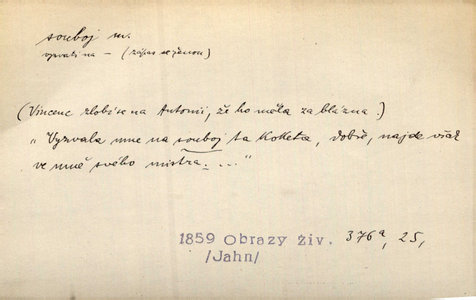 souboj m.
— (zápas se ženou)
(Vincenc zlobí se na Antonii, že ho měla za blázna.)
„Vyzvala mne na souboj ta Koketa, dobře, najde však
ve mně svého mistra. ..."
1859 Obrazy živ. 376a, 25,
/Jahn/